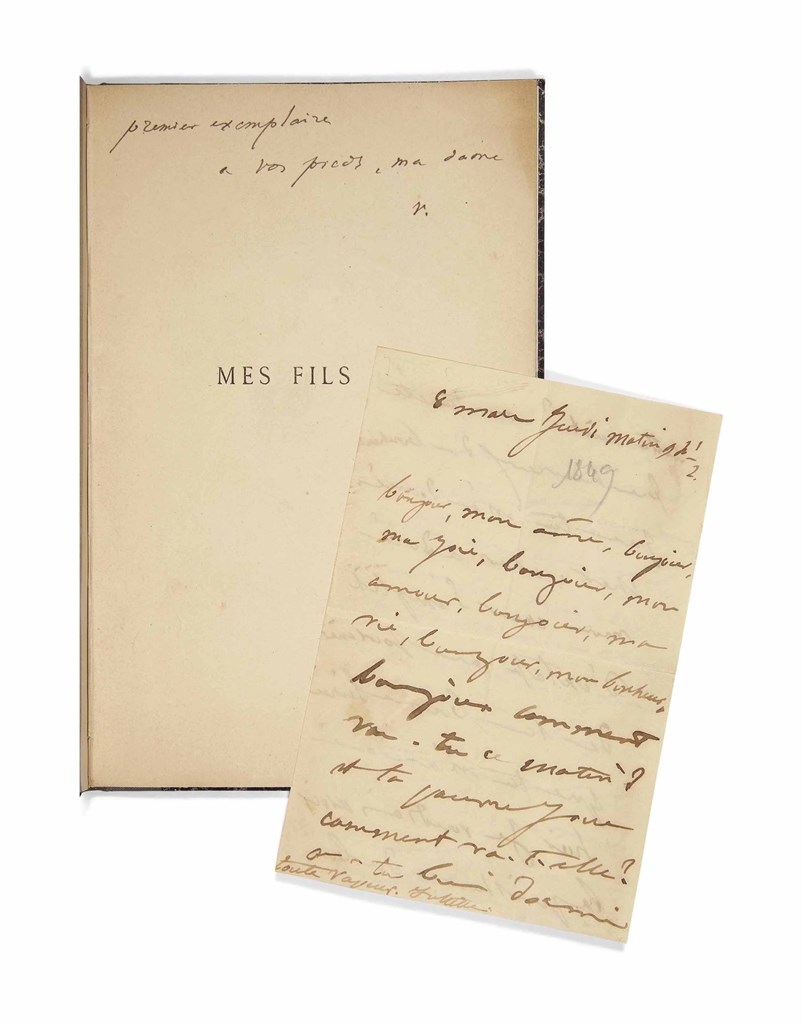 premier exemplaire
a vos pieds, ma dame
V.
MES FILS
8 mars Jeudi matin 9 h 1/2
1849
bonjour, mon âme, bonjour,
ma joie, bonjour, mon
amour, bonjour, ma
vie, bonjour, mon bonheur,
bonjour comment
vas-tu ce matin?
et ta pauvre joue
comment va-t-elle?
as-tu bien dormi
toute vapeur. Juliette